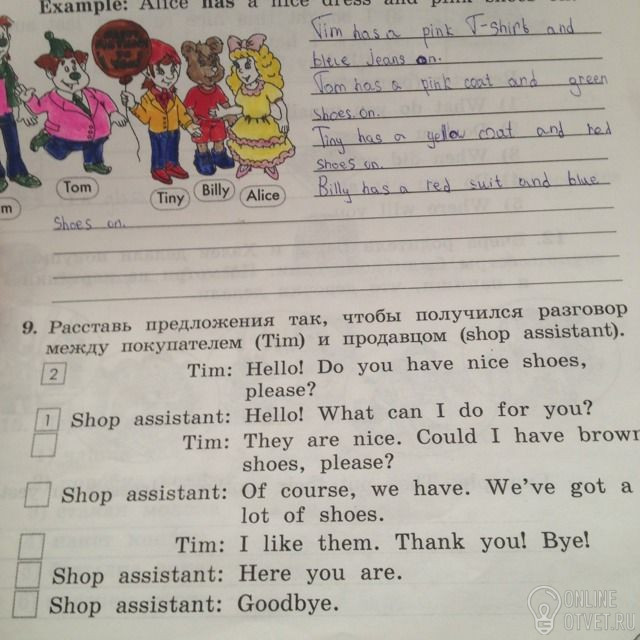 Example: Alice has a nice dress and pink shoes on.
Tim has a pink T-shirt and
blue jeans on.
Tom has a pink coat and green
shoes on.
Tiny has a yellow coat and red
shoes on.
Billy has a red suit and blue
Shoes on.
m
Tom
Tiny
Billy
Alice
9. Расставь предложения так, чтобы получился разговор
между покупателем (Tim) и продавцом (shop assistant).
2 Tim: Hello! Do you have nice shoes,
please?
1 Shop assistant: Hello! What can I do for you?
Tim: They are nice. Could I have brown
shoes, please?
Shop assistant: Of course, we have. We've got a
lot of shoes.
Tim: I like them. Thank you! Bye!
Shop assistant: Here you are.
Shop assistant: Goodbye.
ONLINE
OTVET.RU